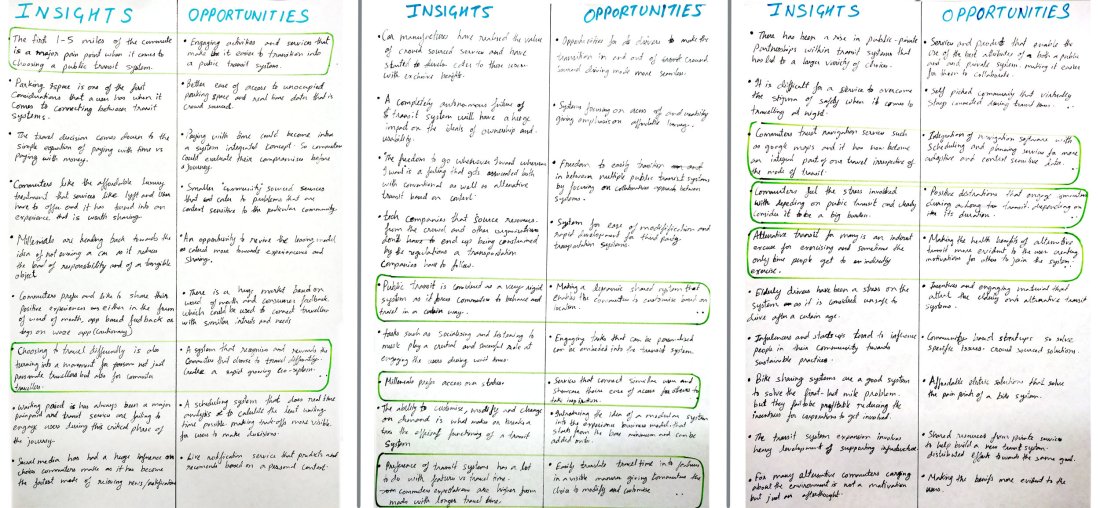 INSIGHTS
OPPORTUNITIES
• The first 1-5 miles of the commute
is a major pain point when it comes to
choosing a public transit system.
• Engaging activities and services that
make it easier to transition into
a public transit system.
• Parking space is one of the first
considerations that a user has when it
comes to connecting between transit
systems.
• Better ease of access to unoccupied
parking space and real time data that is
crowd sourced.
• The travel decision comes down to the
simple equation of paying with time vs
paying with money.
• Paying with time could become into
a system integrated concept. So commuters
could evaluate their compromises before
a journey.
• Commuters like the affordable luxury
treatment that services like lyft and Uber
have to offer and it has turned into an
experience that is worth sharing.
• Smaller community sourced services
that cater to problems that are
content sensitive to the particular community.
• Millennials are heading back towards the
idea of not owning a car as it
the of responsibility and of a tangible
object
• An opportunity to revive the model
catered more towards experiences and
sharing.
• Commuters prefer and like to share their
positive experiences either in the form
of word of mouth, app based feedback or
app (Cautionary)
• There is a huge market based on
word of mouth and consumer feedback.
which could be used to connect travellers
with similar interests and needs
• Choosing to travel differently is also
turning into a movement for not just
passionate travellers but also for commuter
travellers.
• A system that recognises and rewards the
commuters that choose to travel differently.
Create a rapid growing eco-system.
• Waiting period has always been a major
painpoint and transit services are failing to
engage users during this critical phase of
the journey.
• A scheduling system that does real time
analysis to calculate the least waiting
time possible making trade-offs more visible
for users to make decisions.
• Social media has had a huge influence on
choices commuters make as it has become
the fastest mode of receiving news/notifications
• Live notification service that predicts and
recommends based on a personal context.
INSIGHTS
OPPORTUNITIES
• Car manufacturers have realised the value
of crowd sourced services and have
started to develop cater to these users
with exclusive benefits.
• Opportunities for drivers to make the
transition in and out of crowd
sourced driving more seamless.
• A completely autonomous future of
transit system will have a huge
impact on the ideals of ownership and
usability.
• Systems focusing on access and usability
giving emphasis on affordable luxury.
• The freedom to go wherever I want whenever
I want is a feeling that gets associated both
with conventional as well as alternative
transit based on context.
• Freedom to easily transition
in between multiple public transit systems
by focusing on collaborative approach between
systems.
• tech companies that source resources
from the crowd and other organizations
don't have to end up being constrained
by the regulations a transportation
companies have to follow.
• System for ease of modification and
rapid development for third party
transportation systems.
• Public transit is considered as a very rigid
system as it forces commuters to behave and
travel in a certain way.
• Making a dynamic shared system that
enables the commuters to customize based on
location.
• tasks such as socialising and listening to
music play a crucial and role at
engaging the users during wait times.
• Engaging tasks that can be personalised
can be embedded into the transit system.
• Millennials prefer access over status.
• Services that connect similar users and
showcase their ease of access for others to
take inspiration.
• The ability to customise, modify and change
on demand is what makes or breaks
the efficient functioning of a transit
system
• Introducing the idea of a modular system
into the experience business model that
starts from the bare minimum and can be
added onto.
• Preference of transit systems has a lot
to do with features vs travel time.
commuters expectations are higher from
modes with longer travel times.
• Easily translate travel time into features
in a visible manner giving commuters the
choice to modify and customise.
INSIGHTS
OPPORTUNITIES
• There has been a rise in public-private
partnerships within transit systems that
has led to a larger variety of choices.
• Services and products that enable the
use of the best attributes of both a public
and private system making it easier
for them to collaborate.
• It is difficult for a service to overcome
the stigma of safety when it comes to
travelling at night.
• Self picked community that virtually
stays connected during travel times.
• Commuters trust navigation services such
as google maps and it has now become
an integral part of our travel irrespective of
the mode of transit.
• Integration of navigation softwares with
scheduling and planning services for more
adaptive and context sensitive data.
• Commuters feel the stress involved
with depending on public transit and
consider it to be a big burden.
• Positive distractions that engage commuters
during transit, depending on
its duration.
• Alternative transit for many is an indirect
excuse for exercising and sometimes the
only time people get to indirectly
exercise.
• Making the health benefits of alternative
transit more evident to the user creating
motivations for others to join the system.
• Elderly drivers have been a stress on the
system as it is considered unsafe to
drive after a certain age.
• Incentives and engaging material that
attract the elderly onto alternative transit
systems.
• Influencers and startups tend to influence
people in their community towards
sustainable practices.
• Community based startups to solve
specific issues. crowd sourced solutions.
• Bike sharing systems are a good system
to solve the first-last mile problem.
but they fail to be profitable reducing the
incentives for corporations to get involved.
• Affordable electric solutions that solve
the pain point of a bike system.
• The transit system expansion involves
heavy development of supporting infrastructure.
• Shared resources from private services
to help build a new transit system.
distributed efforts towards the same goal.
• For many alternative commuters caring
about the environment is not a motivation
but just an afterthought.
• Making the benefits more evident to the
users.